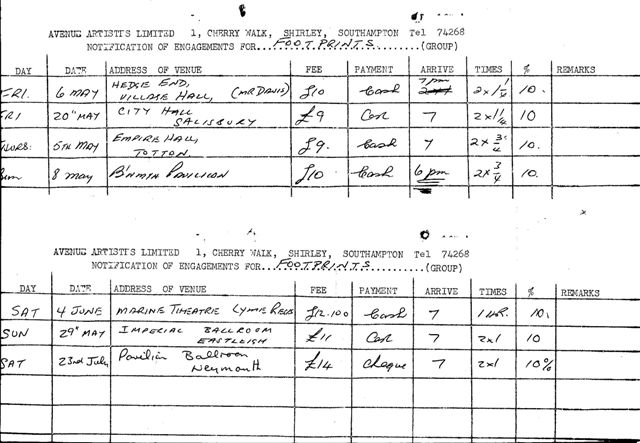 AVENUE ARTISTS LIMITED 1, CHERRY WALK, SHIRLEY, SOUTHAMPTON Tel 74268
NOTIFICATION OF ENGAGEMENTS FOR...FOOTPRINTS...(GROUP)
DAY DATE ADDRESS OF VENUE FEE PAYMENT ARRIVE TIMES % REMARKS
FRI. 6 MAY HEDGE END, VILLAGE HALL, (MR DAVIS) £10 Cash 7pm 2x1 1/4 10.
FRI 20" MAY CITY HALL SALISBURY £9 Cash 7 2x1 1/4 10
THURS: 5TH MAY EMPIRE HALL, TOTTON. £9. Cash 7 2x 3/4 10.
8 MAY B'MTH PAVILION £10 Cash 6pm 2x 3/4 10.
AVENUE ARTISTS LIMITED 1, CHERRY WALK, SHIRLEY, SOUTHAMPTON Tel 74268
NOTIFICATION OF ENGAGEMENTS FOR...FOOTPRINTS...(GROUP)
DAY DATE ADDRESS OF VENUE FEE PAYMENT ARRIVE TIMES % REMARKS
SAT 4 JUNE MARINE THEATRE LYME REGIS £12.10.0 Cash 7 1 HR. 10.
SUN 29" MAY IMPERIAL BALLROOM EASTLEIGH £11 Cash 7 2x1 10
SAT 23rd July Pavilion Ballroom Weymouth £14 Cheque 7 2x1 10%